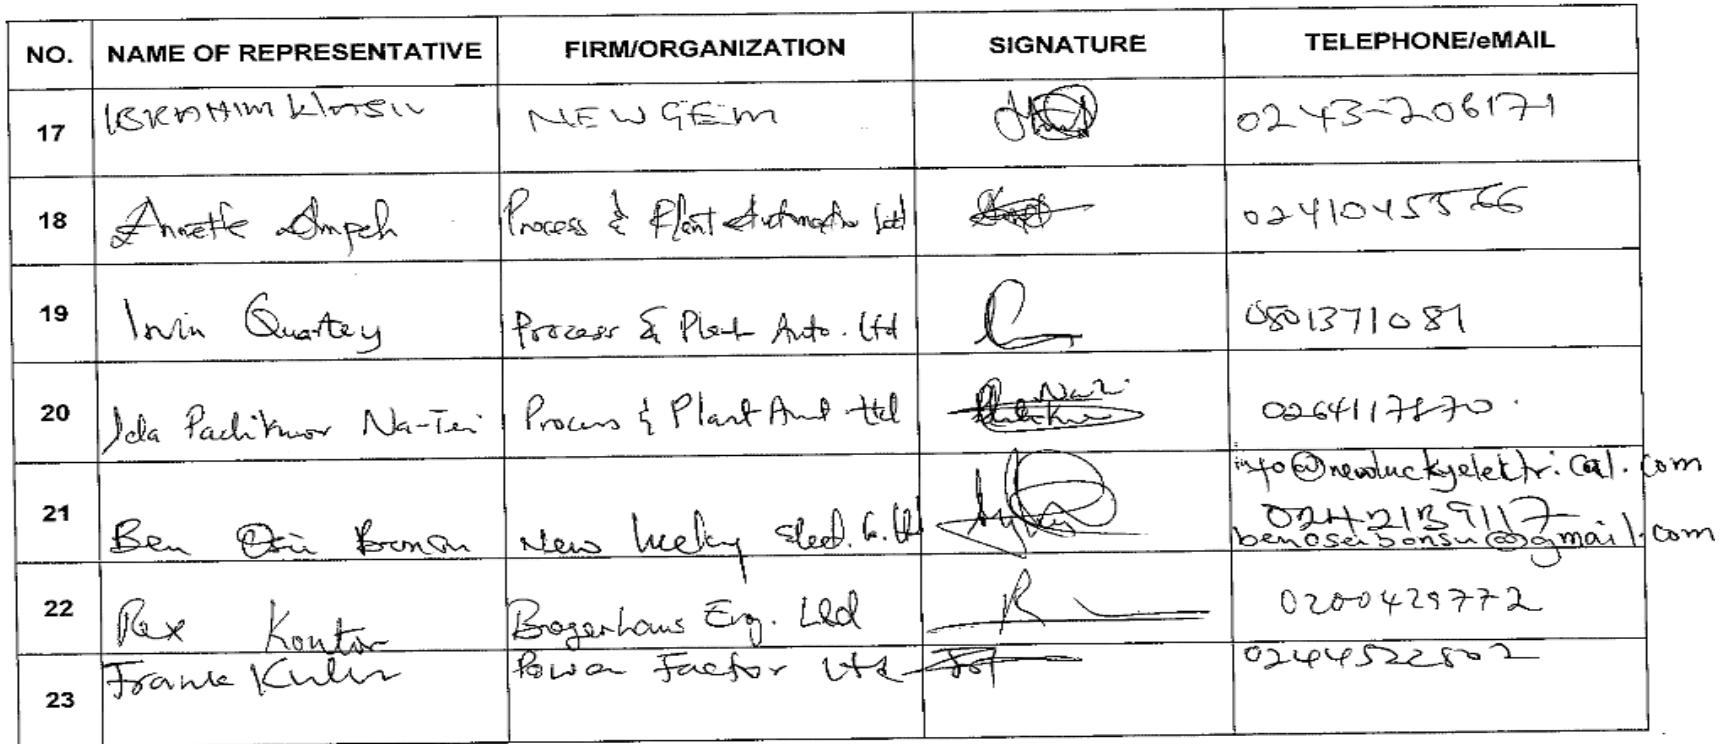 NO. NAME OF REPRESENTATIVE FIRM/ORGANIZATION SIGNATURE TELEPHONE/eMAIL
17 IBRAHIM NEW GEM 0243-206171
18 Anette Ampeh Process & Plant Automation Ltd
19 Irvin Quartey Process & Plant Auto. Ltd 0501371081
20 Ida Padikuor Na-Tei Process & Plant Aut Ltd 0264117870.
info@newluckyelektrical.com
21 Ben Osei Bonsu New Lucky Elect. Co. Ltd 0242139117
benoseibonsu@gmail.com
22 Rex Kontor Eng. Ltd 0200429772
23 Frank Power Factor Ltd 0244522802